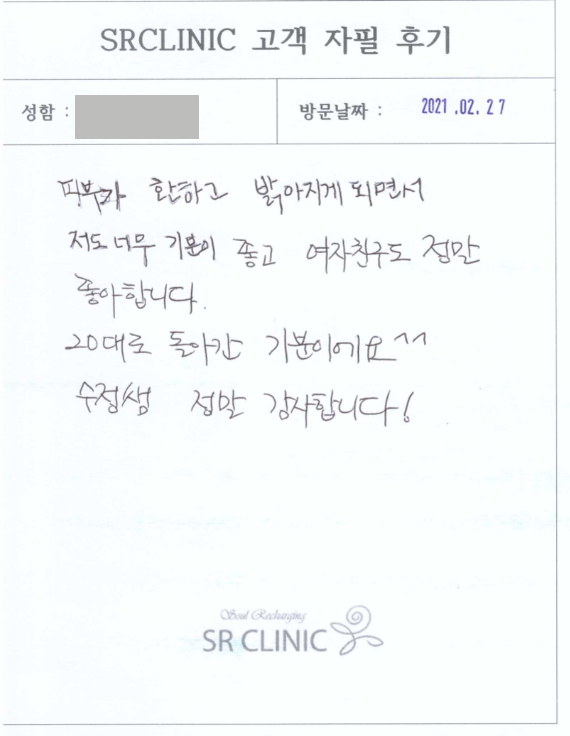 SRCLINIC 고객 자필 후기
성함 :
방문날짜 : 2021 .02. 27
피부가 환하고 밝아지게 되면서
저도 너무 기분이 좋고 여자친구도 정말
좋아합니다.
20대로 돌아간 기분이에요^^
수정쌤 정말 감사합니다!
Soul Recharging
SR CLINIC